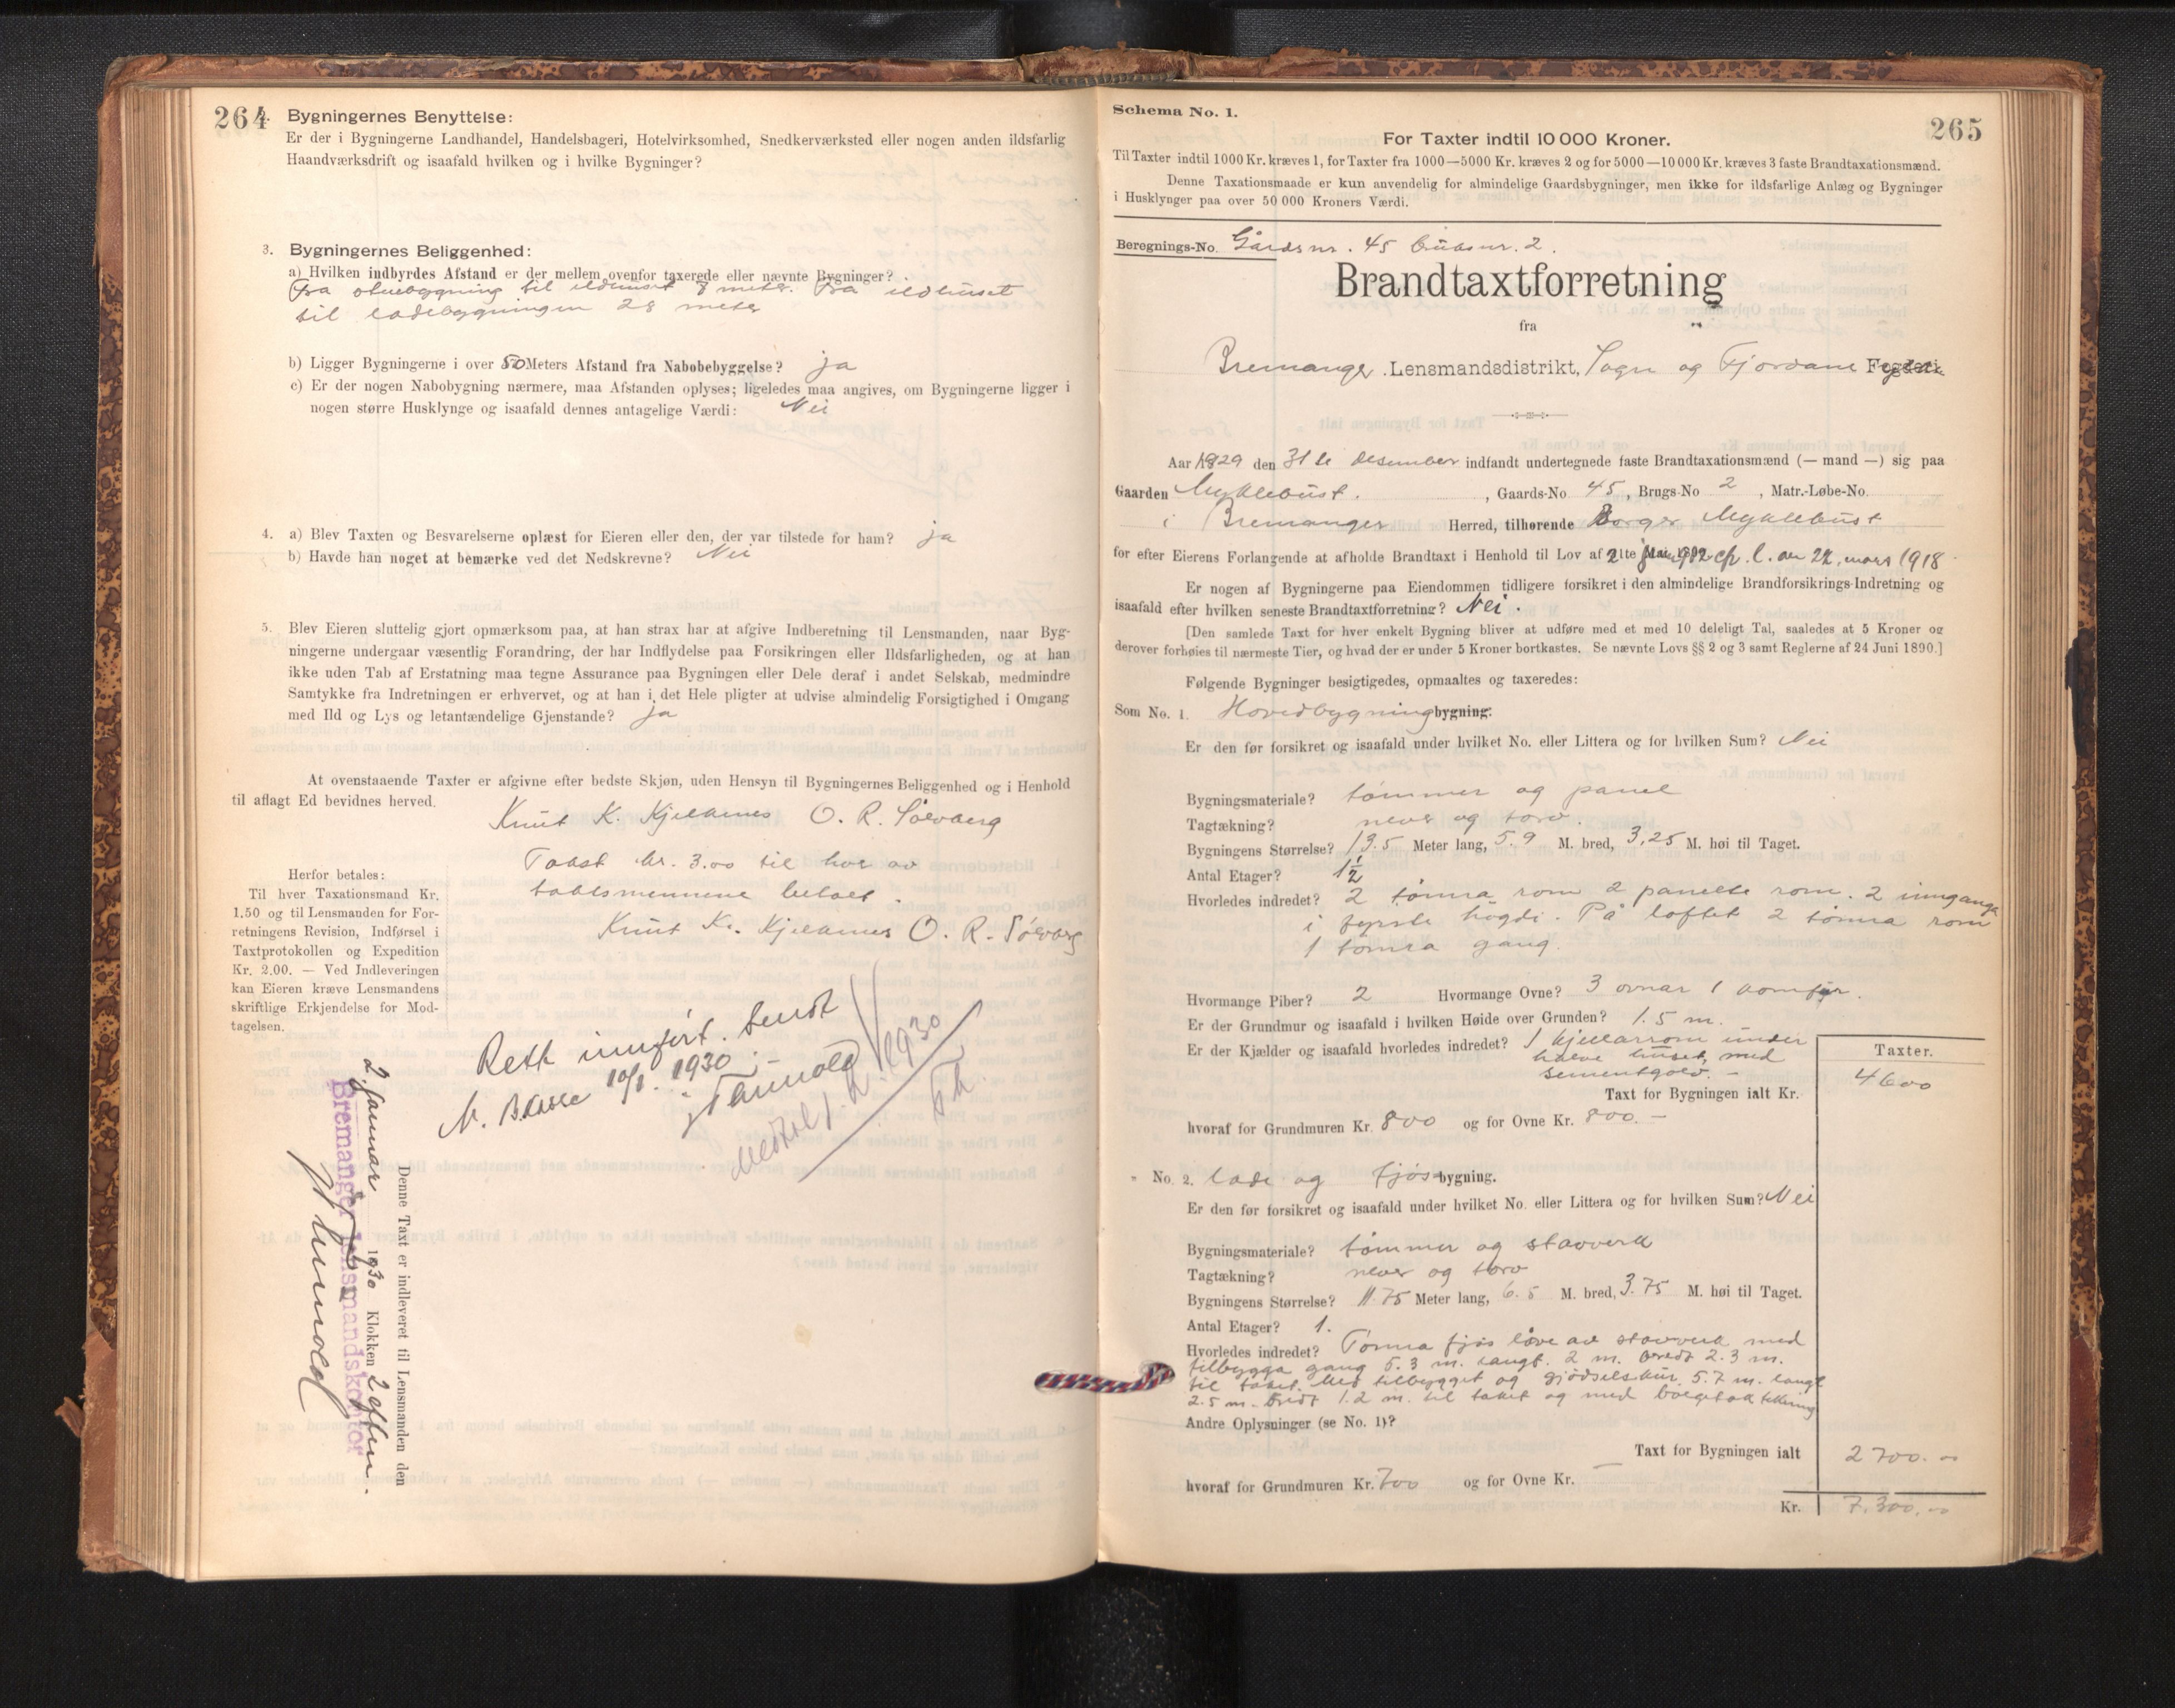 264
2. Bygningernes Benyttelse:
Er der i Bygningerne Landhandel, Handelsbageri, Hotelvirksomhed, Snedkerværksted eller nogen anden ildsfarlig
Haandværksdrift og isaafald hvilken og i hvilke Bygninger?
3. Bygningernes Beliggenhed:
a) Hvilken indbyrdes Afstand er der mellem ovenfor taxerede eller nævnte Bygninger?
fra stuebygning til ildhuset 8 meter. Fra ildhuset
til ladebygningen 28 meter
b) Ligger Bygningerne i over 50 Meters Afstand fra Nabobebyggelse? ja
c) Er der nogen Nabobygning nærmere, maa Afstanden oplyses; ligeledes maa angives, om Bygningerne ligger i
nogen større Husklynge og isaafald dennes antagelige Værdi: Nei
4. a) Blev Taxten og Besvarelserne oplæst for Eieren eller den, der var tilstede for ham? ja
b) Havde han noget at bemærke ved det Nedskrevne? Nei
5. Blev Eieren sluttelig gjort opmærksom paa, at han strax har at afgive Indberetning til Lensmanden, naar Byg-
ningerne undergaar væsentlig Forandring, der har Indflydelse paa Forsikringen eller Ildsfarligheden, og at han
ikke uden Tab af Erstatning maa tegne Assurance paa Bygningen eller Dele deraf i andet Selskab, medmindre
Samtykke fra Indretningen er erhvervet, og at han i det Hele pligter at udvise almindelig Forsigtighed i Omgang
med Ild og Lys og letantændelige Gjenstande? ja
At ovenstaaende Taxter er afgivne efter bedste Skjøn, uden Hensyn til Bygningernes Beliggenhed og i Henhold
til aflagt Ed bevidnes herved.
Knut K. Kjelkenes O. R. Sölvberg
Takst kr. 3.00 til hver av
takstmennene betalt.
Knut K. Kjelkenes O. R. Sölvberg
Herfor betales:
Til hver Taxationsmand Kr.
1.50 og til Lensmanden for For-
retningens Revision, Indførsel i
Taxtprotokollen og Expedition
Kr. 2.00. — Ved Indleveringen
kan Eieren kræve Lensmandens
skriftlige Erkjendelse for Mod-
tagelsen.
Rett innført. Sendt
N. B.kasse 10/1. 1930.
Denne Taxt er indleveret til Lensmanden den
2. januar 1930 Klokken 2 eftm.
Bremanger lensmandskontor
265
Schema No. 1.
For Taxter indtil 10 000 Kroner.
Til Taxter indtil 1000 Kr. kræves 1, for Taxter fra 1000—5000 Kr. kræves 2 og for 5000—10 000 Kr. kræves 3 faste Brandtaxationsmænd.
Denne Taxationsmaade er kun anvendelig for almindelige Gaardsbygninger, men ikke for ildsfarlige Anlæg og Bygninger
i Husklynger paa over 50 000 Kroners Værdi.
Beregnings-No. Gårdsnr. 45 bruksnr. 2.
Brandtaxtforretning
fra
Bremanger Lensmandsdistrikt, Sogn og Fjordane Fylke
Aar 1929 den 31te desember indfandt undertegnede faste Brandtaxationsmænd (— mand —) sig paa
Gaarden Myklebust. , Gaards-No 45, Brugs-No 2, Matr.-Løbe-No.
i Bremanger Herred, tilhørende Borger Myklebust
for efter Eierens Forlangende at afholde Brandtaxt i Henhold til Lov af cfr. l. av 22. mars 1918
Er nogen af Bygningerne paa Eiendommen tidligere forsikret i den almindelige Brandforsikrings-Indretning og
isaafald efter hvilken seneste Brandtaxtforretning? Nei.
[Den samlede Taxt for hver enkelt Bygning bliver at udføre med et med 10 deleligt Tal, saaledes at 5 Kroner og
derover forhøies til nærmeste Tier, og hvad der er under 5 Kroner bortkastes. Se nævnte Lovs §§ 2 og 3 samt Reglerne af 24 Juni 1890.]
Følgende Bygninger besigtigedes, opmaaltes og taxeredes:
Som No. 1. Hovedbygning bygning.
Er den før forsikret og isaafald under hvilket No. eller Littera og for hvilken Sum? Nei
Bygningsmateriale? tömmer og panel
Tagtækning? never og torv.
Bygningens Størrelse? 13.5 Meter lang, 5.9 M. bred, 3,25 M. høi til Taget.
Antal Etager? 1½
Hvorledes indredet? 2 tömra rom 2 panelte rom. 2 innganga
i fyrste högdi. På loftet 2 tömra rom
1 tömra gang.
Hvormange Piber? 2 Hvormange Ovne? 3 ovnar 1 komfyr.
Er der Grundmur og isaafald i hvilken Høide over Grunden? 1.5 m.
Er der Kjælder og isaafald hvorledes indredet? 1 kjellarrom under
halve huset, med
sementgolv. —
Taxter.
Taxt for Bygningen ialt Kr. 4600
hvoraf for Grundmuren Kr. 800 og for Ovne Kr. 800. —
" No. 2. Lade og Fjös bygning.
Er den før forsikret og isaafald under hvilket No. eller Littera og for hvilken Sum? Nei
Bygningsmateriale? tömmer og stavverk
Tagtækning? never og torv
Bygningens Størrelse? 11.75 Meter lang, 6.5 M. bred, 3.75 M. høi til Taget.
Antal Etager? 1.
Hvorledes indredet? Tömra fjös löve av stavverk med
tilbygga gang 5.3 m. langt. 2 m. bredt 2.3 m.
til taket. Med tilbygget og gjödselskur 5.7 m. langt
2.5 m. bredt 1.2 m. til taket og med bölgetak tekking
Andre Oplysninger (se No. 1)?
Taxt for Bygningen ialt 2700.00
hvoraf for Grundmuren Kr. 700 og for Ovne Kr. —
Kr. 7.300.00